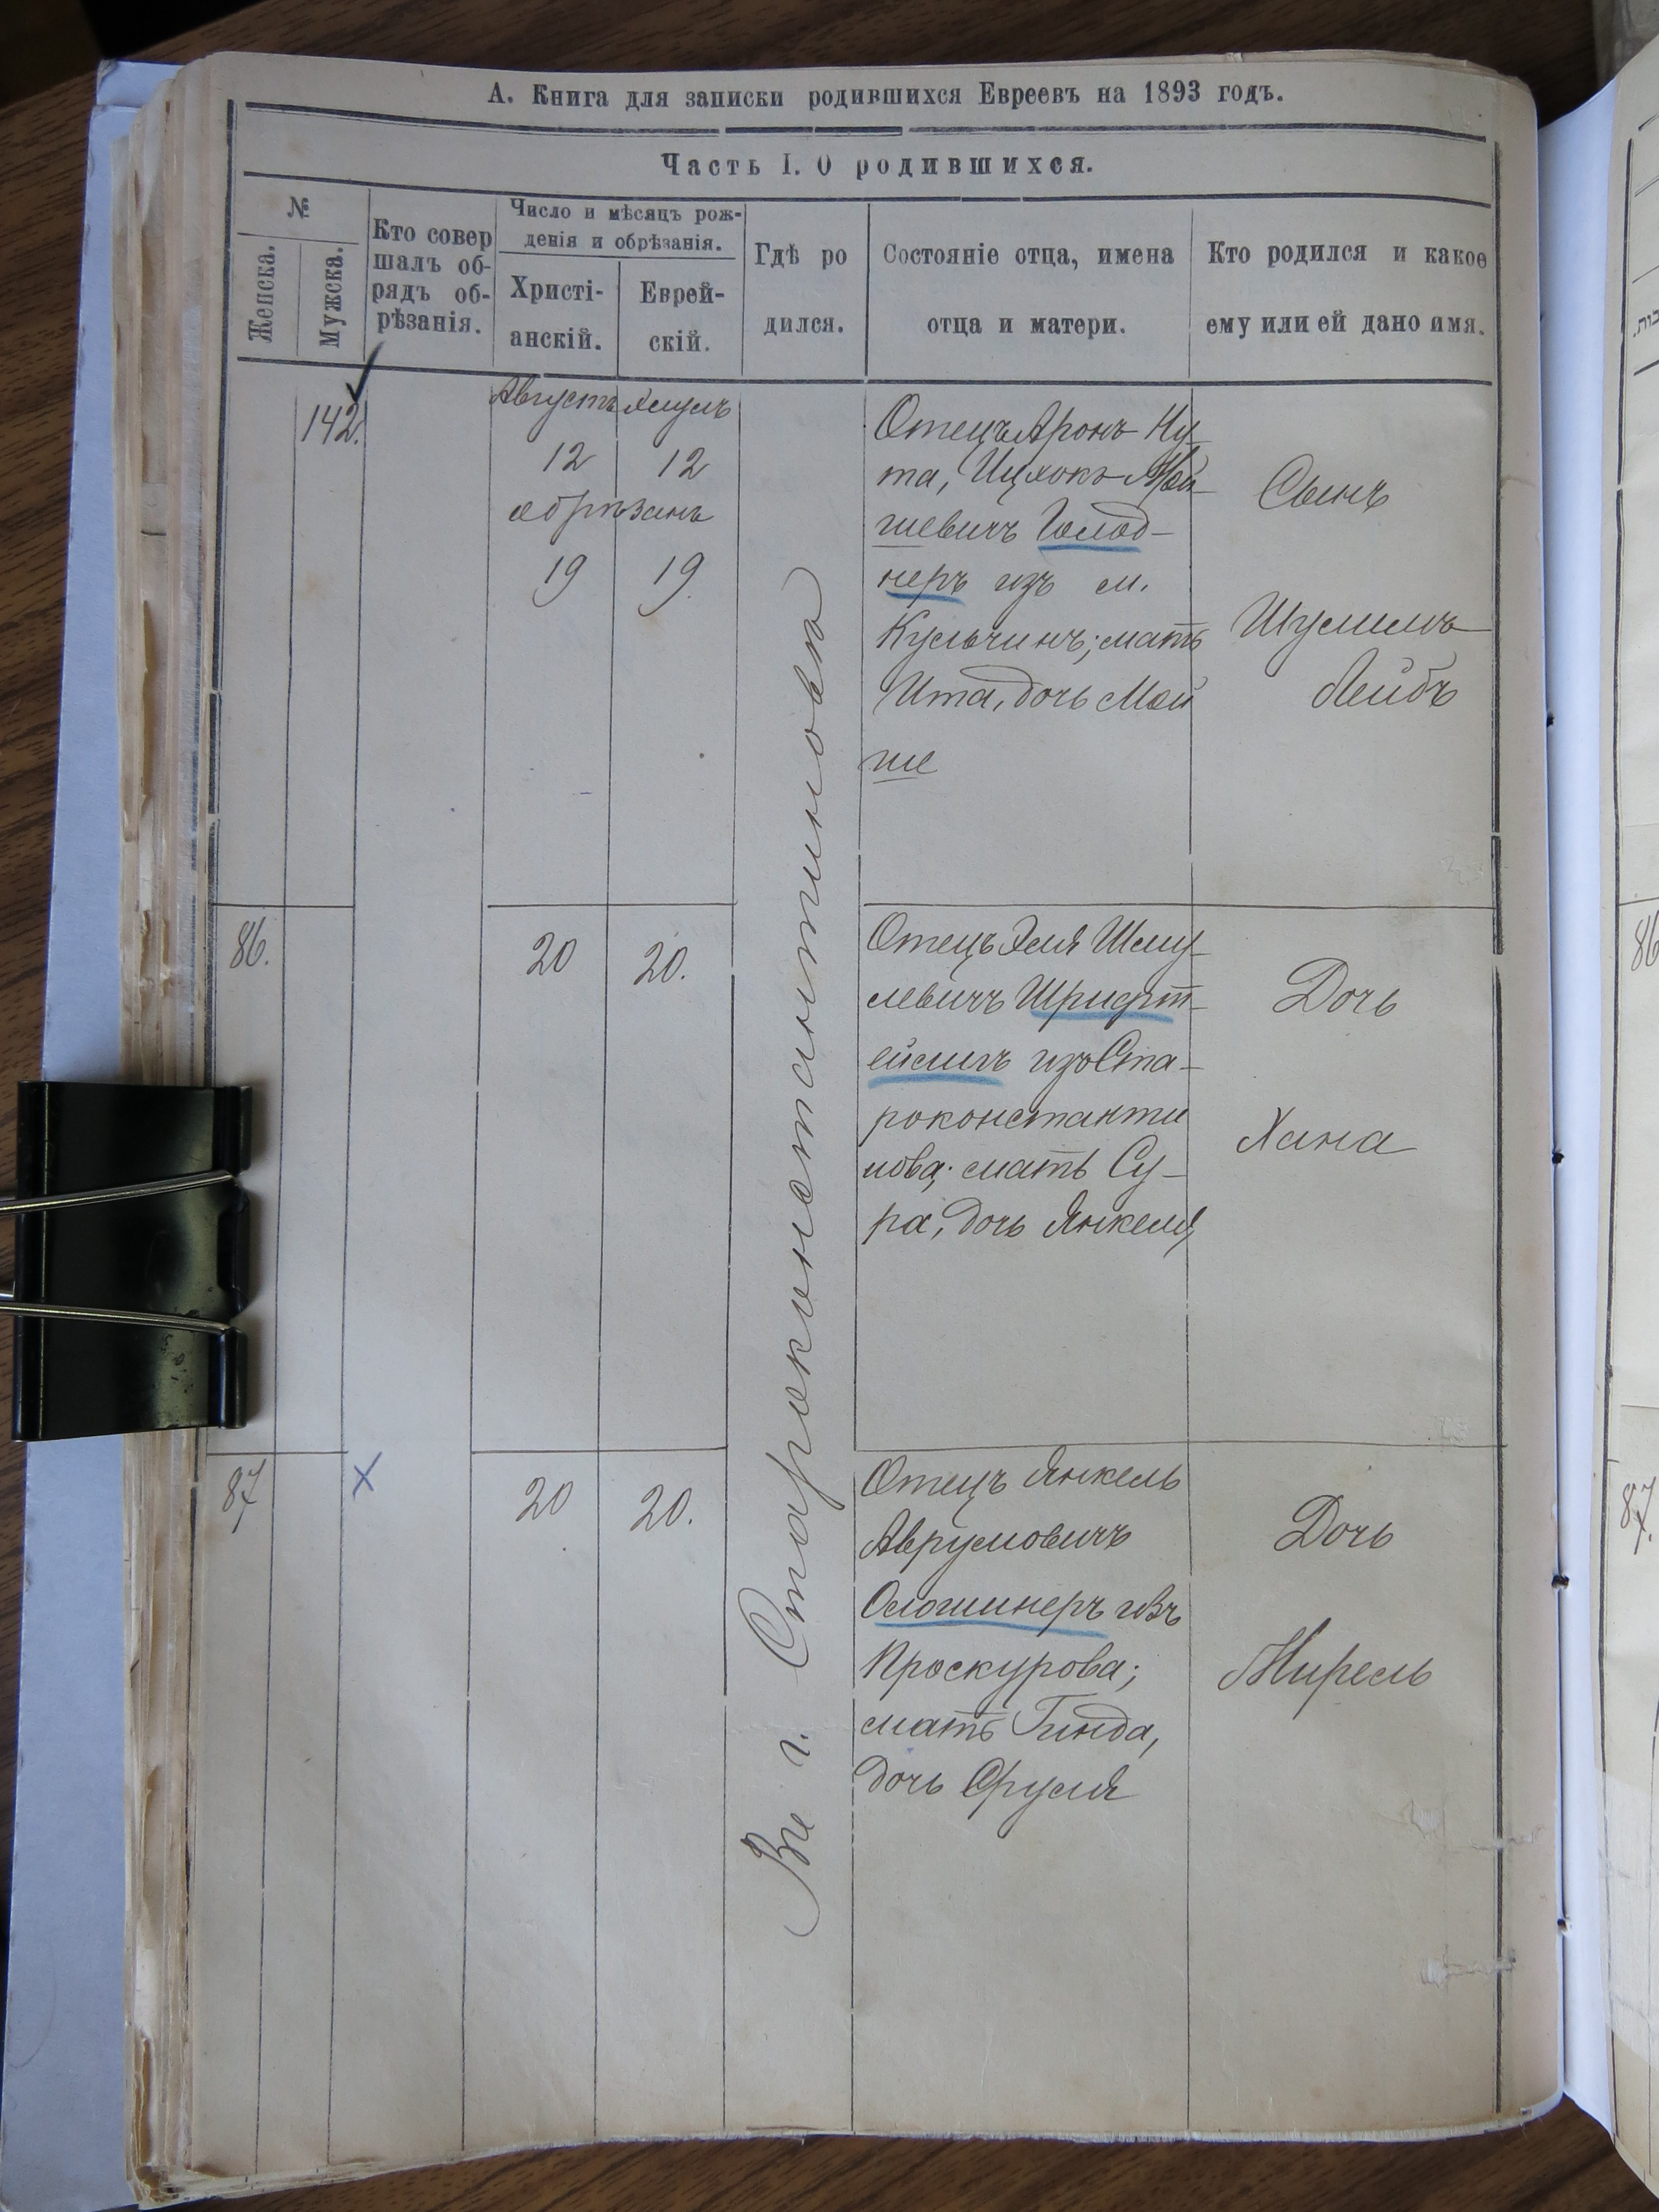 А. Книга для записки родившихся Евреевъ на 1893 годъ.
Часть I. О родившихся.
№
Женска.
Мужска.
Кто совер
шалъ об-
рядъ об-
рѣзанія.
Число и мѣсяцъ рож-
денія и обрѣзанія.
Христі-
анскій.
Еврей-
скій.
Гдѣ ро
дился.
Состояніе отца, имена
отца и матери.
Кто родился и какое
ему или ей дано имя.
142.
Августъ Элулъ
12 12
обрѣзанъ
19 19.
Отецъ Аронъ Ну-
та, Ицхокъ Мой-
шевичъ Голод-
неръ изъ м.
Кульчинъ; мать
Ита, дочь Мой
ше
Сынъ
Шулимъ
Лейбъ
Въ г. Староконстантиновѣ
86.
20 20.
Отецъ Эля Шму-
левичъ Шрифт-
ейлихъ изъ Ста-
роконстанти
нова; мать Су-
ра, дочь Янкеля
Дочь
Хана
87
20 20.
Отецъ Янкель
Аврумовичъ
изъ
Проскурова;
мать Гинда,
дочь Сруля
Дочь
Мирель
86
87.